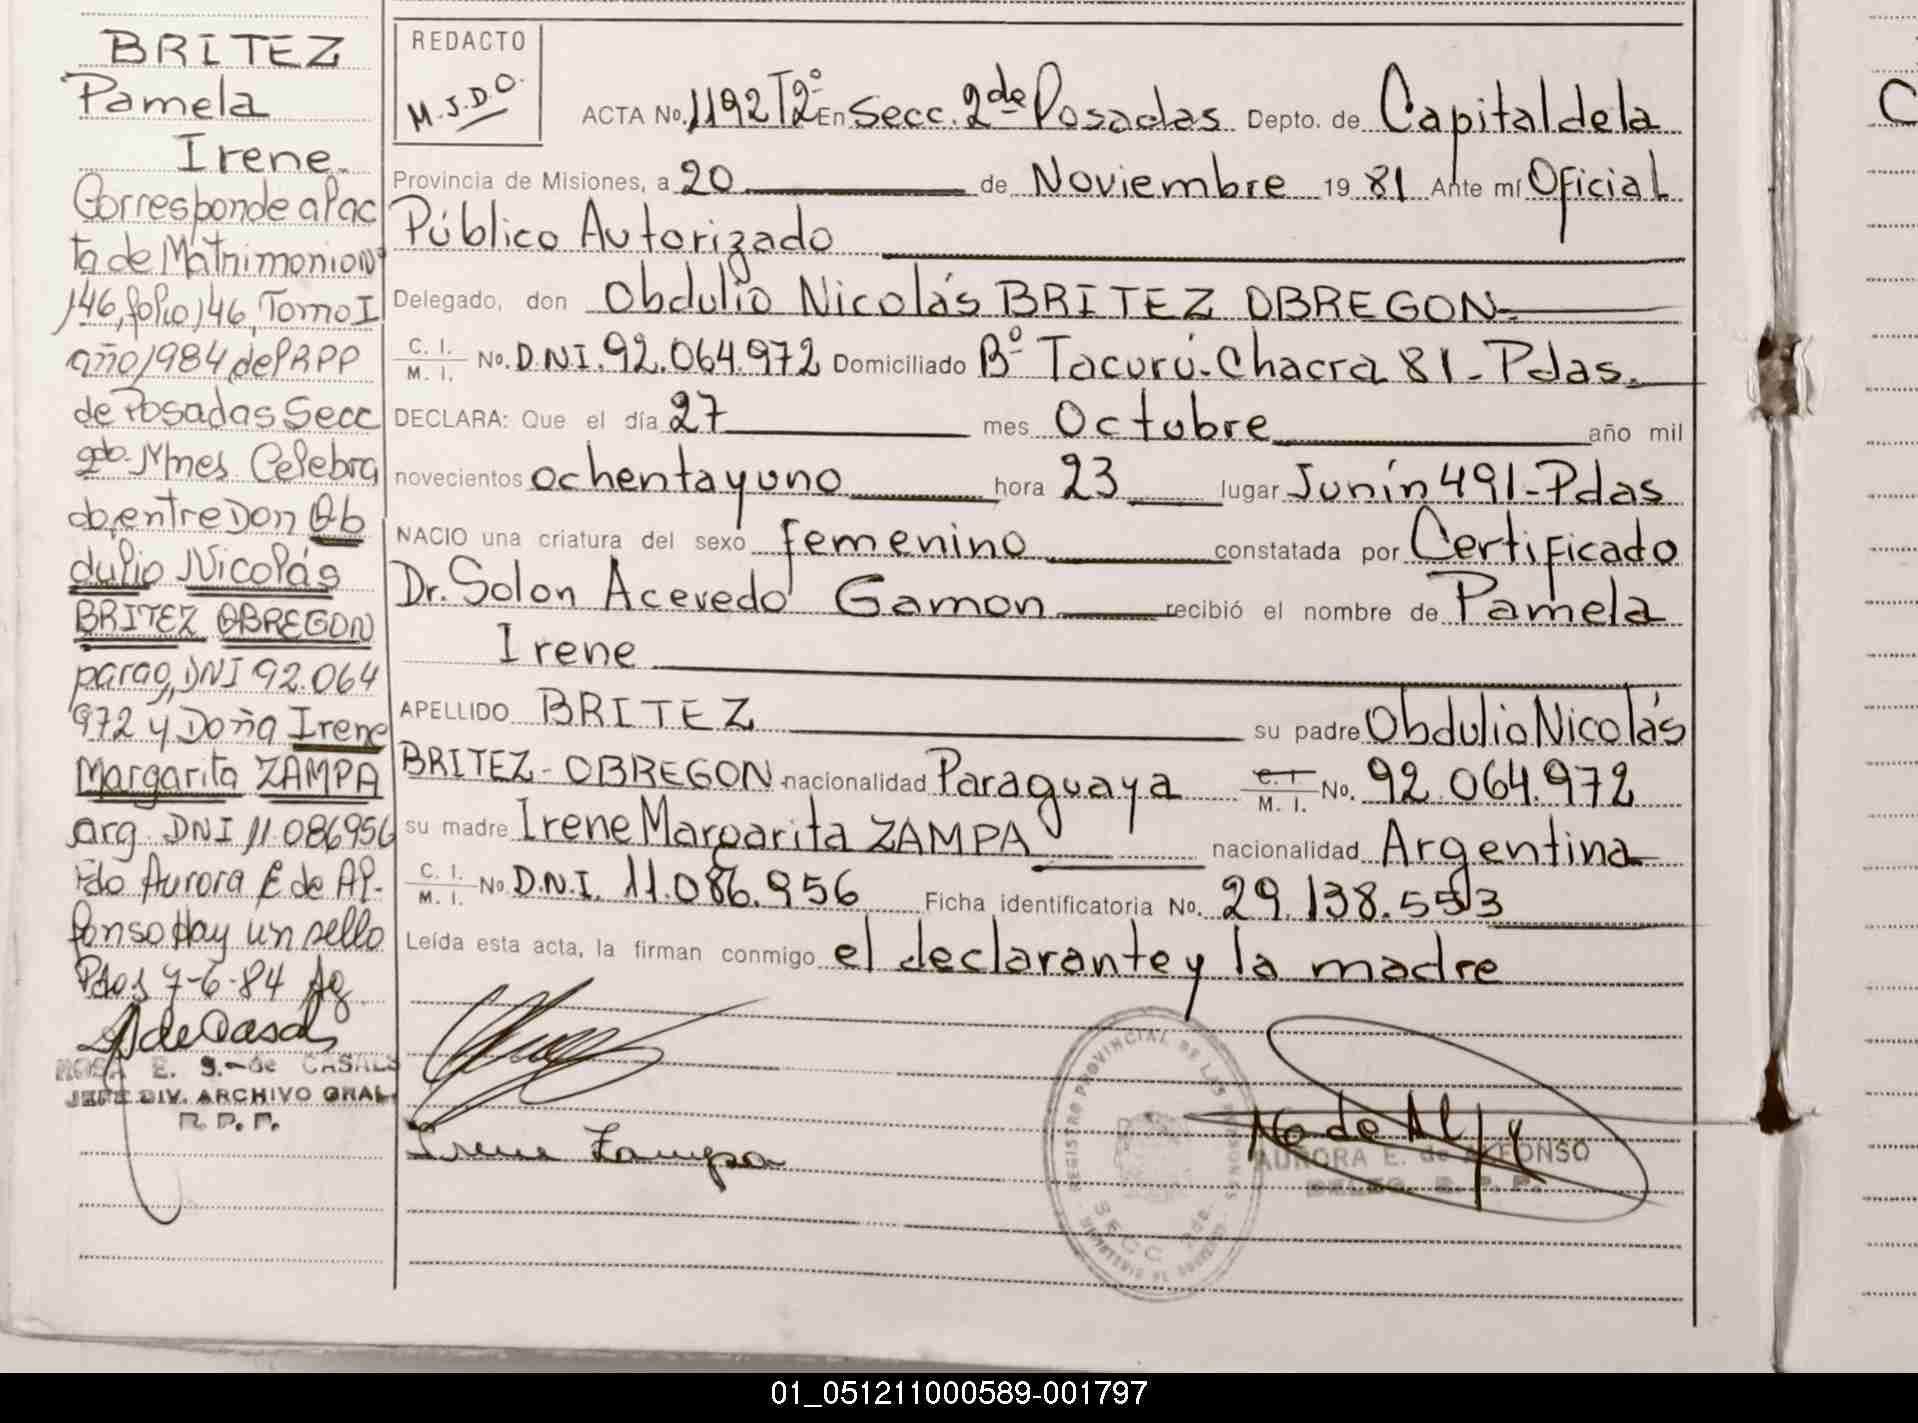 BRITEZ
Pamela
Irene.
Corresponde al ac
ta de Matrimonio Nº
146, folio 146, Tomo I
año 1984, del RPP
de Posadas Secc
2do. Mnes. Celebra
do, entre Don Ob
dulio Nicolás
BRITEZ OBREGON
parag, DNI 92.064
972 y Doña Irene
Margarita ZAMPA
arg. DNI 11.086956
Fdo Aurora E de Al-
fonso Hay un sello
Pdas 7-6-84
ROSA E. S.-de CASALS
JEFE DIV. ARCHIVO GRAL.
R. P. P.
REDACTO
M.J.D.O.
ACTA No. 1192 Tº2º En Secc. 2da Posadas Depto. de Capital de la
Provincia de Misiones, a 20 de Noviembre 19 81 Ante mí Oficial
Público Autorizado
Delegado, don Obdulio Nicolás BRITEZ OBREGON-
C. I. M. I. No. D.N.I. 92.064.972 Domiciliado Bº Tacurú-Chacra 81-Pdas.
DECLARA: Que el día 27 mes Octubre año mil
novecientos ochentayuno hora 23 lugar Junín 491-Pdas
NACIO una criatura del sexo femenino constatada por Certificado
Dr. Solon Acevedo Gamon recibió el nombre de Pamela
Irene
APELLIDO BRITEZ su padre Obdulio Nicolás
BRITEZ-OBREGON nacionalidad Paraguaya C. I. M. I. No. 92.064.972
su madre Irene Margarita ZAMPA nacionalidad Argentina
C. I. M. I. No. D.N.I. 11.086.956 Ficha identificatoria No. 29.138.553
Leída esta acta, la firman conmigo el declarante y la madre
Irene Zampa
REGISTRO PROVINCIAL DE LAS PERSONAS
SECC 2da
AURORA E. de ALFONSO
DELEG. R. P. P.
01_051211000589-001797